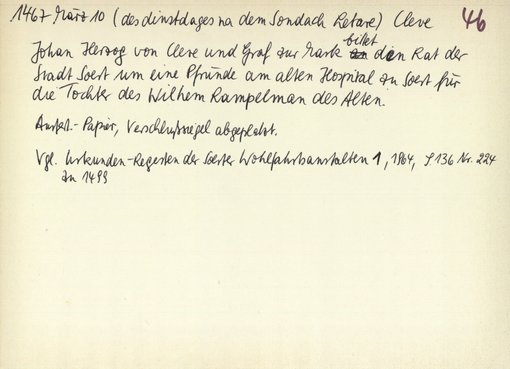 1467 März 10 (des dinstdages na dem Sondach Letare) Cleve 46
Johan Herzog von Cleve und Graf zur Mark bittet den Rat der
Stadt Soest um eine Pfründe am alten Hospital zu Soest für
die Tochter des Wilhem Rampelman des Alten.
Ausf.- Papier, Verschlußsiegel abgeplatzt.
Vgl. Urkunden-Regesten der Soester Wohlfahrtsanstalten 1, 1964, S 136 Nr. 224
zu 1499